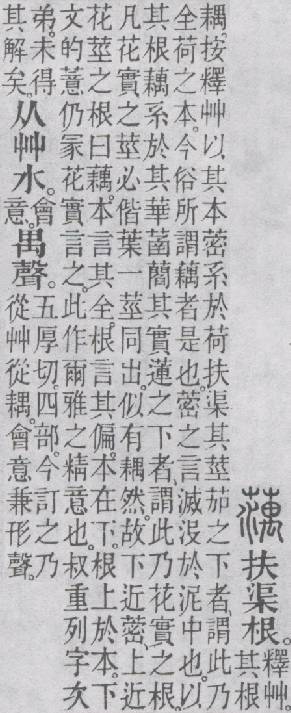 蕅扶渠根。釋艸
其根
耦。按釋艸以其本蔤系於荷扶渠其莖茄之下者。謂此乃
全荷之本。今俗所謂藕者是也。蔤之言滅没於泥中也。以
其根藕系於其華菡䕞其實蓮之下者。謂此乃花實之根。
凡花實之莖必偕葉一莖同出。似有耦然。故下近蔤。上近
花莖之根曰藕。本言其全。根言其偏。本在下。根上於本。下
文的薏仍冡花實言之。此作爾雅之精意也。叔重列字次
弟。未得
其解矣。
从艸水。會
意。
禺聲。五厚切。四部。今訂之乃
從艸從耦。會意兼形聲。